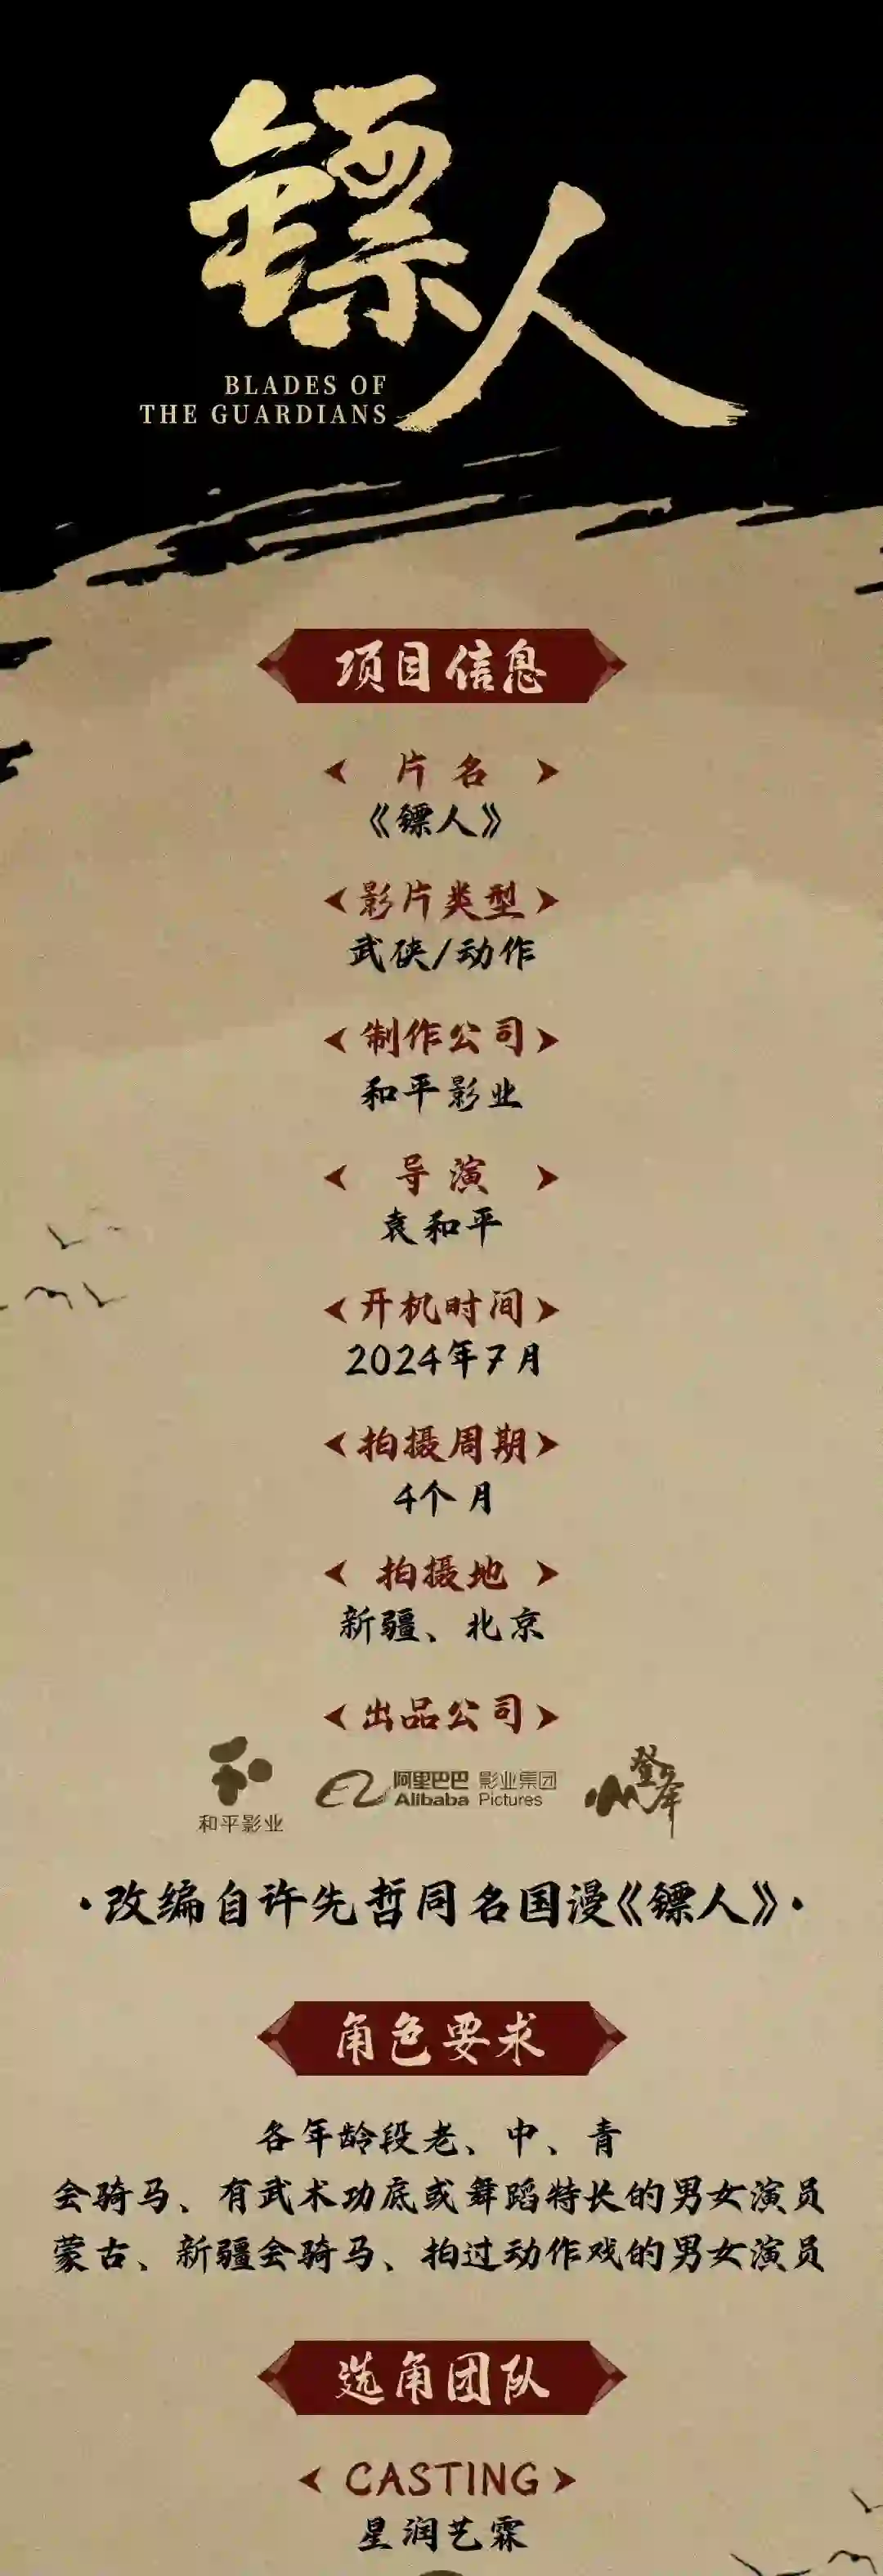 镖人
BLADES OF
THE GUARDIANS
项目信息
片名
《镖人》
影片类型
武侠/动作
制作公司
和平影业
导演
袁和平
开机时间
2024年7月
拍摄周期
4个月
拍摄地
新疆、北京
出品公司
和平影业
阿里巴巴 影业集团
Alibaba Pictures
登峰
·改编自许先哲同名国漫《镖人》·
角色要求
各年龄段老、中、青
会骑马、有武术功底或舞蹈特长的男女演员
蒙古、新疆会骑马、拍过动作戏的男女演员
选角团队
CASTING
星润艺霖